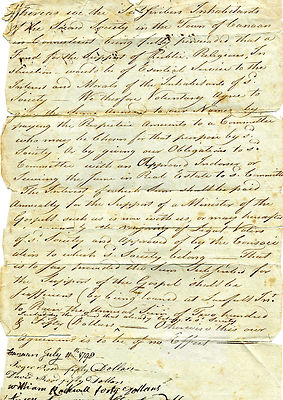 Whereas we the Subscribers Inhabitants
of the Second Society in the Town of Canaan
in Connecticut being fully persuaded that a
Fund for the Support of Public Religious In-
struction would be of Essential Service to the
Interest and Morals of the Inhabitants of sd.
Society We therefore voluntarily agree to
pay the Sum Annexed to our Names by
paying the Respective Amounts to a Committee
who may be Chosen for that purpose by sd.
Society Or by giving our Obligations to sd.
Committee with an Approved Indorser, or
Securing the same in Real Estate to sd. Committee
The Interest of which Sum shall be paid
Annually for the Support of a Minister of the
Gospell such as is now with us, or may hereafter
be by the majority of Legal Voters
of sd. Society and Approved of by the Consoci-
ation to which sd. Society belong That
is to say provided the Sum Subscribed for
the Support of the Gospel shall be
sufficient (by being loaned at Lawfull Int.
to
& Fifty Dollars Otherwise this our
Agreement is to be of no Effect
Canaan July 11th 1798
fifty Dollars
David fifty Dollars
William Rockwell forty Dollars